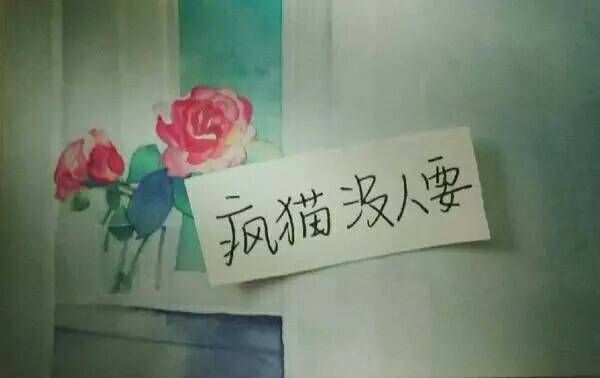 疯猫没人要